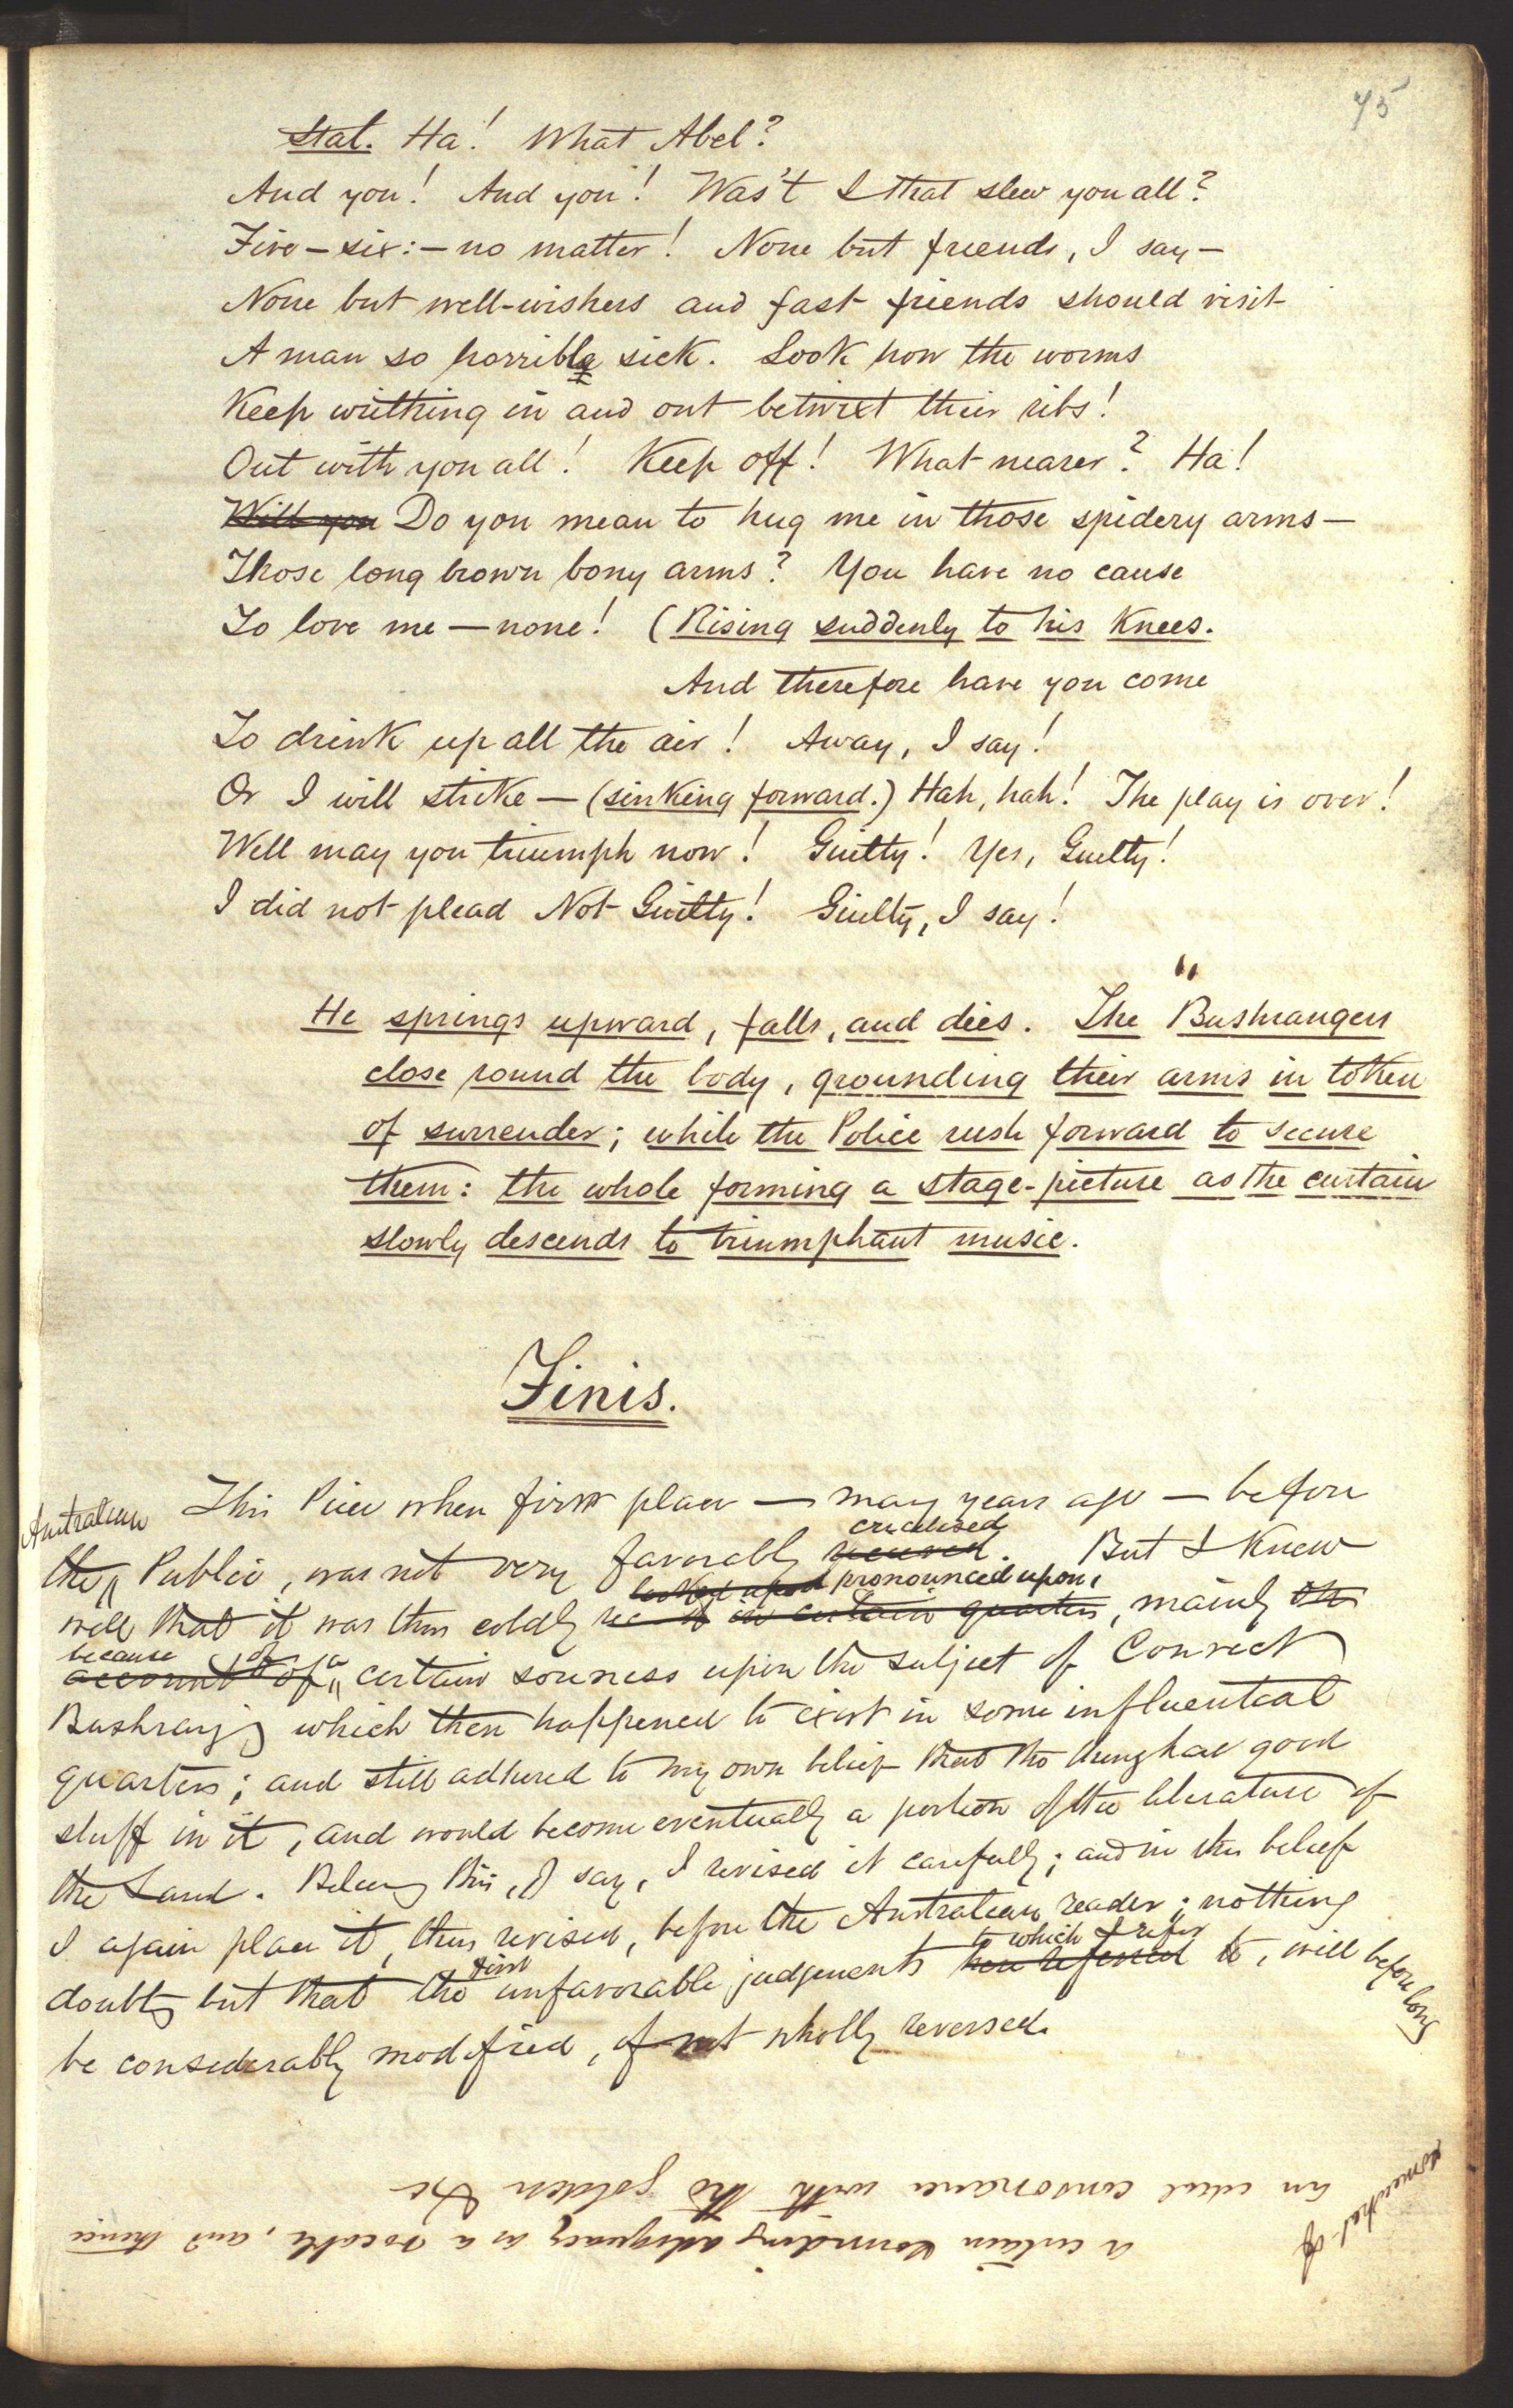 75
Stal. Ha! What Abel?
And you! And you! Was't I that slew you all?
Five – six: – no matter! None but friends, I say –
None but well-wishers and fast friends should visit
A man so horribly sick. Look how the worms
Keep writhing in and out betwixt their ribs!
Out with you all! Keep off! What nearer? Ha!
Will you Do you mean to hug me in those spidery arms –
Those long brown bony arms? You have no cause
To love me – none! (Rising suddenly to his knees.
And therefore have you come
To drink up all the air! Away, I say!
Or I will strike – (sinking forward.) Hah, hah! The play is over!
Well may you triumph now! Guilty! Yes, Guilty!
I did not plead Not Guilty! Guilty, I say!
He springs upward, falls, and dies. The Bushrangers
close round the body, grounding their arms in token
of surrender; while the Police rush forward to secure
them: the whole forming a stage-picture as the curtain
slowly descends to triumphant music.
Finis.
This Piece when first place – many years ago – before
Australian
criticised
the Public, was not very favorably received. But I knew
looked upon pronounced upon,
well that it was thus coldly in certain quarters, mainly on
because of a
account of certain soreness upon the subject of Convict
Bushranging which then happened to exist in some influential
quarters; and still adhered to my own belief that the thing had good
stuff in it, and would become eventually a portion of the literature of
the Land. Believing this, I say, I revised it carefully; and in this belief
I again place it, thus revised, before the Australian reader; nothing
first to which I refer
doubting but that the unfavorable judgements here referred to, will before long
be considerably modified, if not wholly reversed.
somewhat of
a certain sounding adequacy as a vocable, and thence
an ideal consonance with the golden